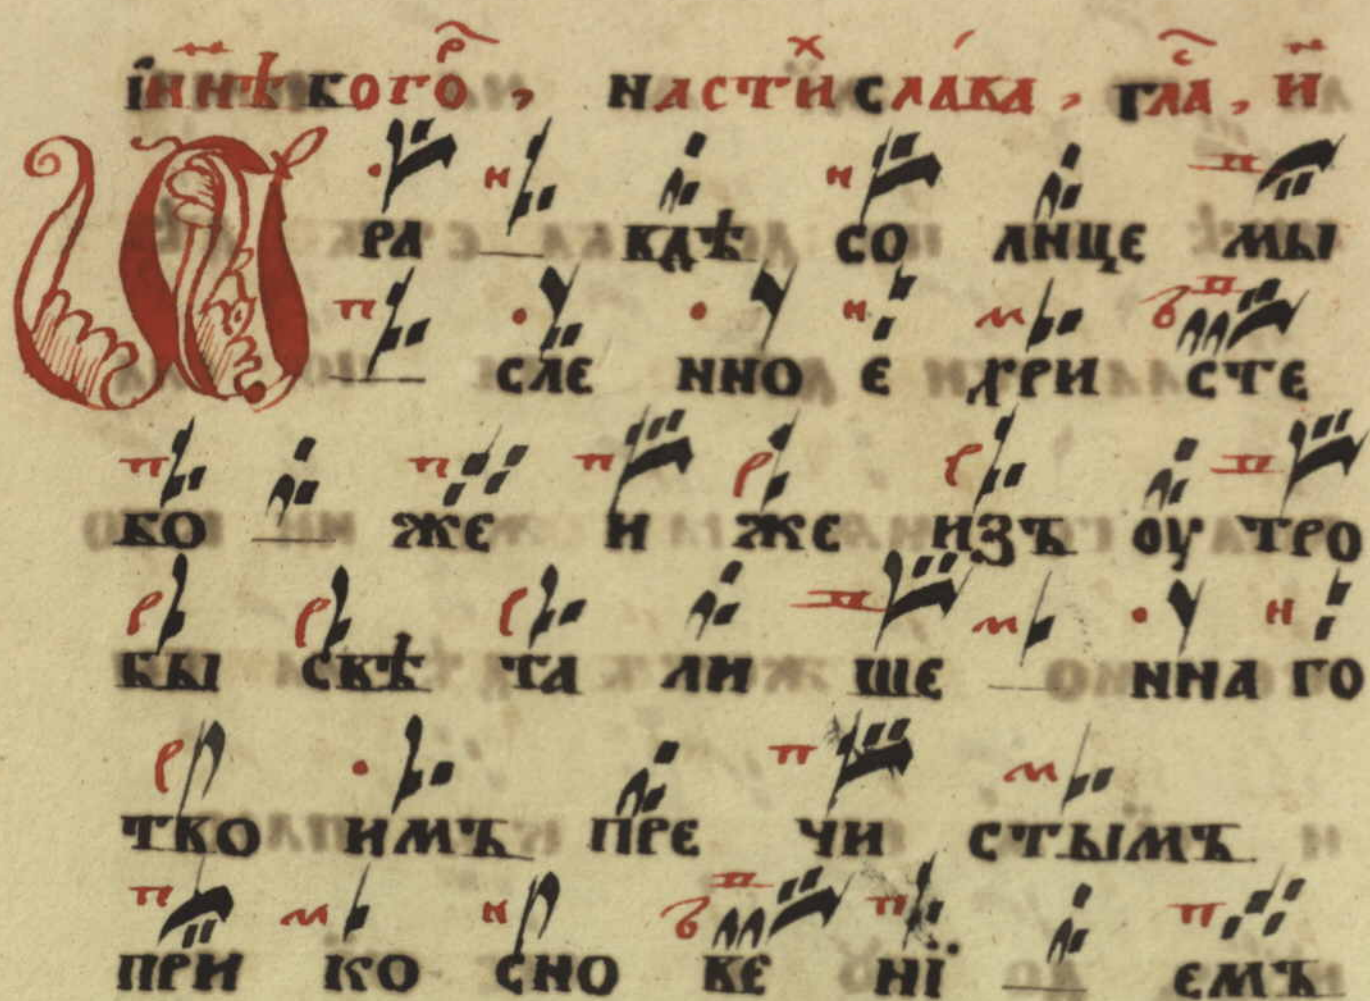 їн҃нѣ Богоⷬ҇, настиⷯ слава, глаⷭ҇, и҃
П ра вдѣ со лнце мы
сле нно е хри сте
бо же и же изъ оу тро
бы свѣ та ли ше нна го
тво имъ пре чи стымъ
при ко сно ве нї емъ